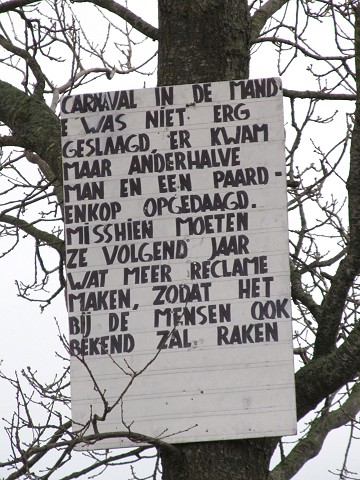 CARNAVAL IN DE MAND
E WAS NIET ERG
GESLAAGD, ER KWAM
MAAR ANDERHALVE
MAN EN EEN PAARD-
ENKOP OPGEDAAGD.
MISSHIEN MOETEN
ZE VOLGEND JAAR
WAT MEER RECLAME
MAKEN, ZODAT HET
BIJ DE MENSEN OOK
BEKEND ZAL RAKEN